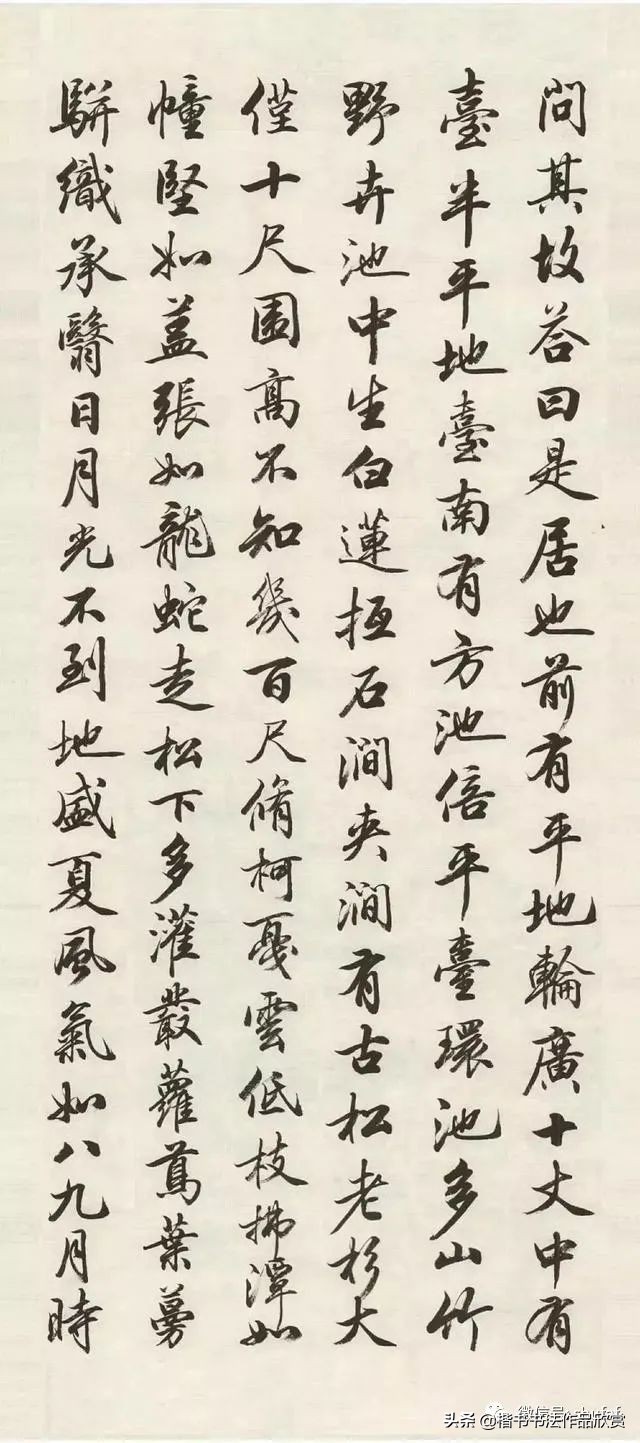 問其故答曰是居也前有平地輪廣十丈中有
臺半平地臺南有方池倍平臺環池多山竹
野卉池中生白蓮抵石澗夾澗有古松老杉大
僅十尺圍高不知幾百尺脩柯戛雲低枝拂潭如
幢竪如蓋張如龍蛇走松下多灌叢蘿蔦葉蔓
駢織承翳日月光不到地盛夏風氣如八九月時
微信号
头条 @楷书书法作品欣赏